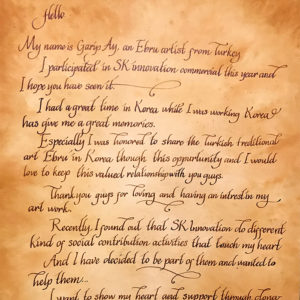 Hello
My name is Garip Ay, an Ebru artist from Turkey
I participated in SK innovation commercial this year and
I hope you have seen it.
I had a great time in Korea while I was working Korea
has give me a great memories.
Especially I was honored to share the Turkish treditional
art Ebru in Korea though this oppurtunity and I would
love to keep this valued relationship with you guys.
Thank you guys for loving and having an intrest in my
art work.
Recently, I found out that SK Innovation do different
kind of social contribution activities that teuch my heart
And I have decided to be part of them and wanted to
help them...
I want to show my heart and support through